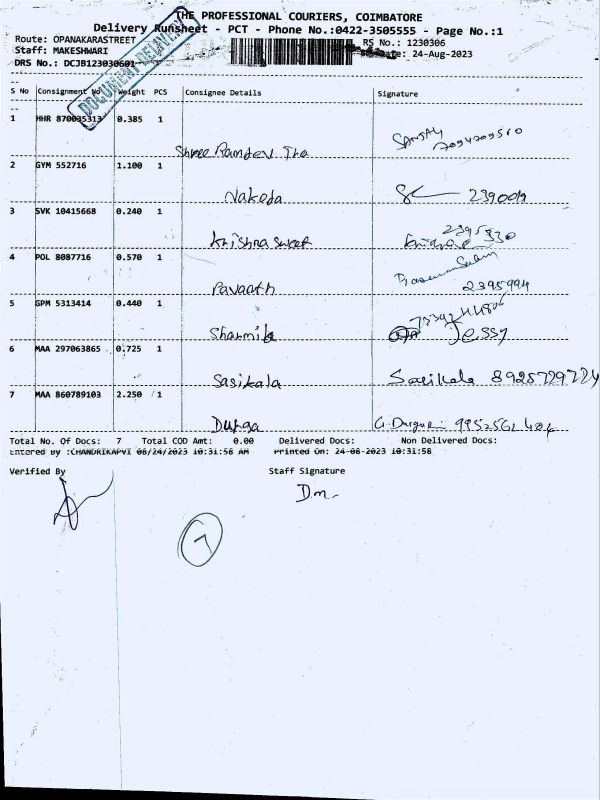 THE PROFESSIONAL COURIERS, COIMBATORE
Delivery Runsheet - PCT - Phone No.:0422-3505555 - Page No.:1
Route: OPANAKARASTREET
RS No.: 1230306
Staff: MAKESHWARI
Date: 24-Aug-2023
DRS No.: DCJB123030601
DOCUMENT DELIVERY
S No Consignment No Weight PCS Consignee Details Signature
1 HHR 870035313 0.385 1
Shree Ramdev Tha
2 GYM 552716 1.100 1
Nakoda 239009
3 SVK 10415668 0.240 1
Krishna sweet
4 POL 8087716 0.570 1
2395994
5 GPM 5313414 0.440 1
Sharmila Jessy
6 MAA 297063865 0.725 1
Sasikala Sasikala 8925729724
7 MAA 860789103 2.250 1
Durga G. Durga 9952562404
Total No. Of Docs: 7 Total COD Amt: 0.00 Delivered Docs: Non Delivered Docs:
Entered By :CHANDRIKAPVI 08/24/2023 10:31:58 AM Printed On: 24-08-2023 10:31:58
Verified By Staff Signature
7